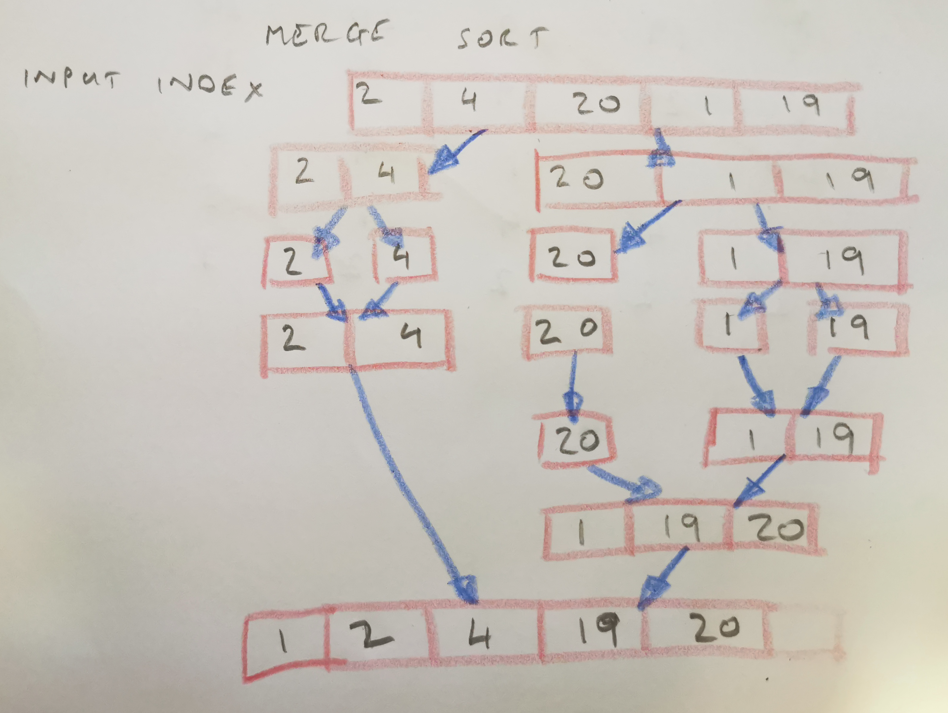 MERGE SORT
INPUT INDEX 2 4 20 1 19
2 4 20 1 19
2 4 20 1 19
2 4 20 1 19
20 1 19
1 19 20
1 2 4 19 20